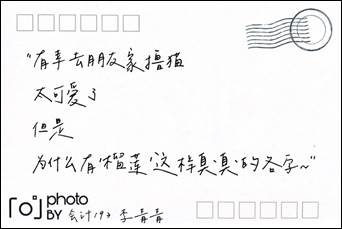 “有幸去朋友家撸猫
太可爱了
但是
为什么有‘榴莲’这样真·真·的名字~”
「o」photo
BY 会计193 李青青